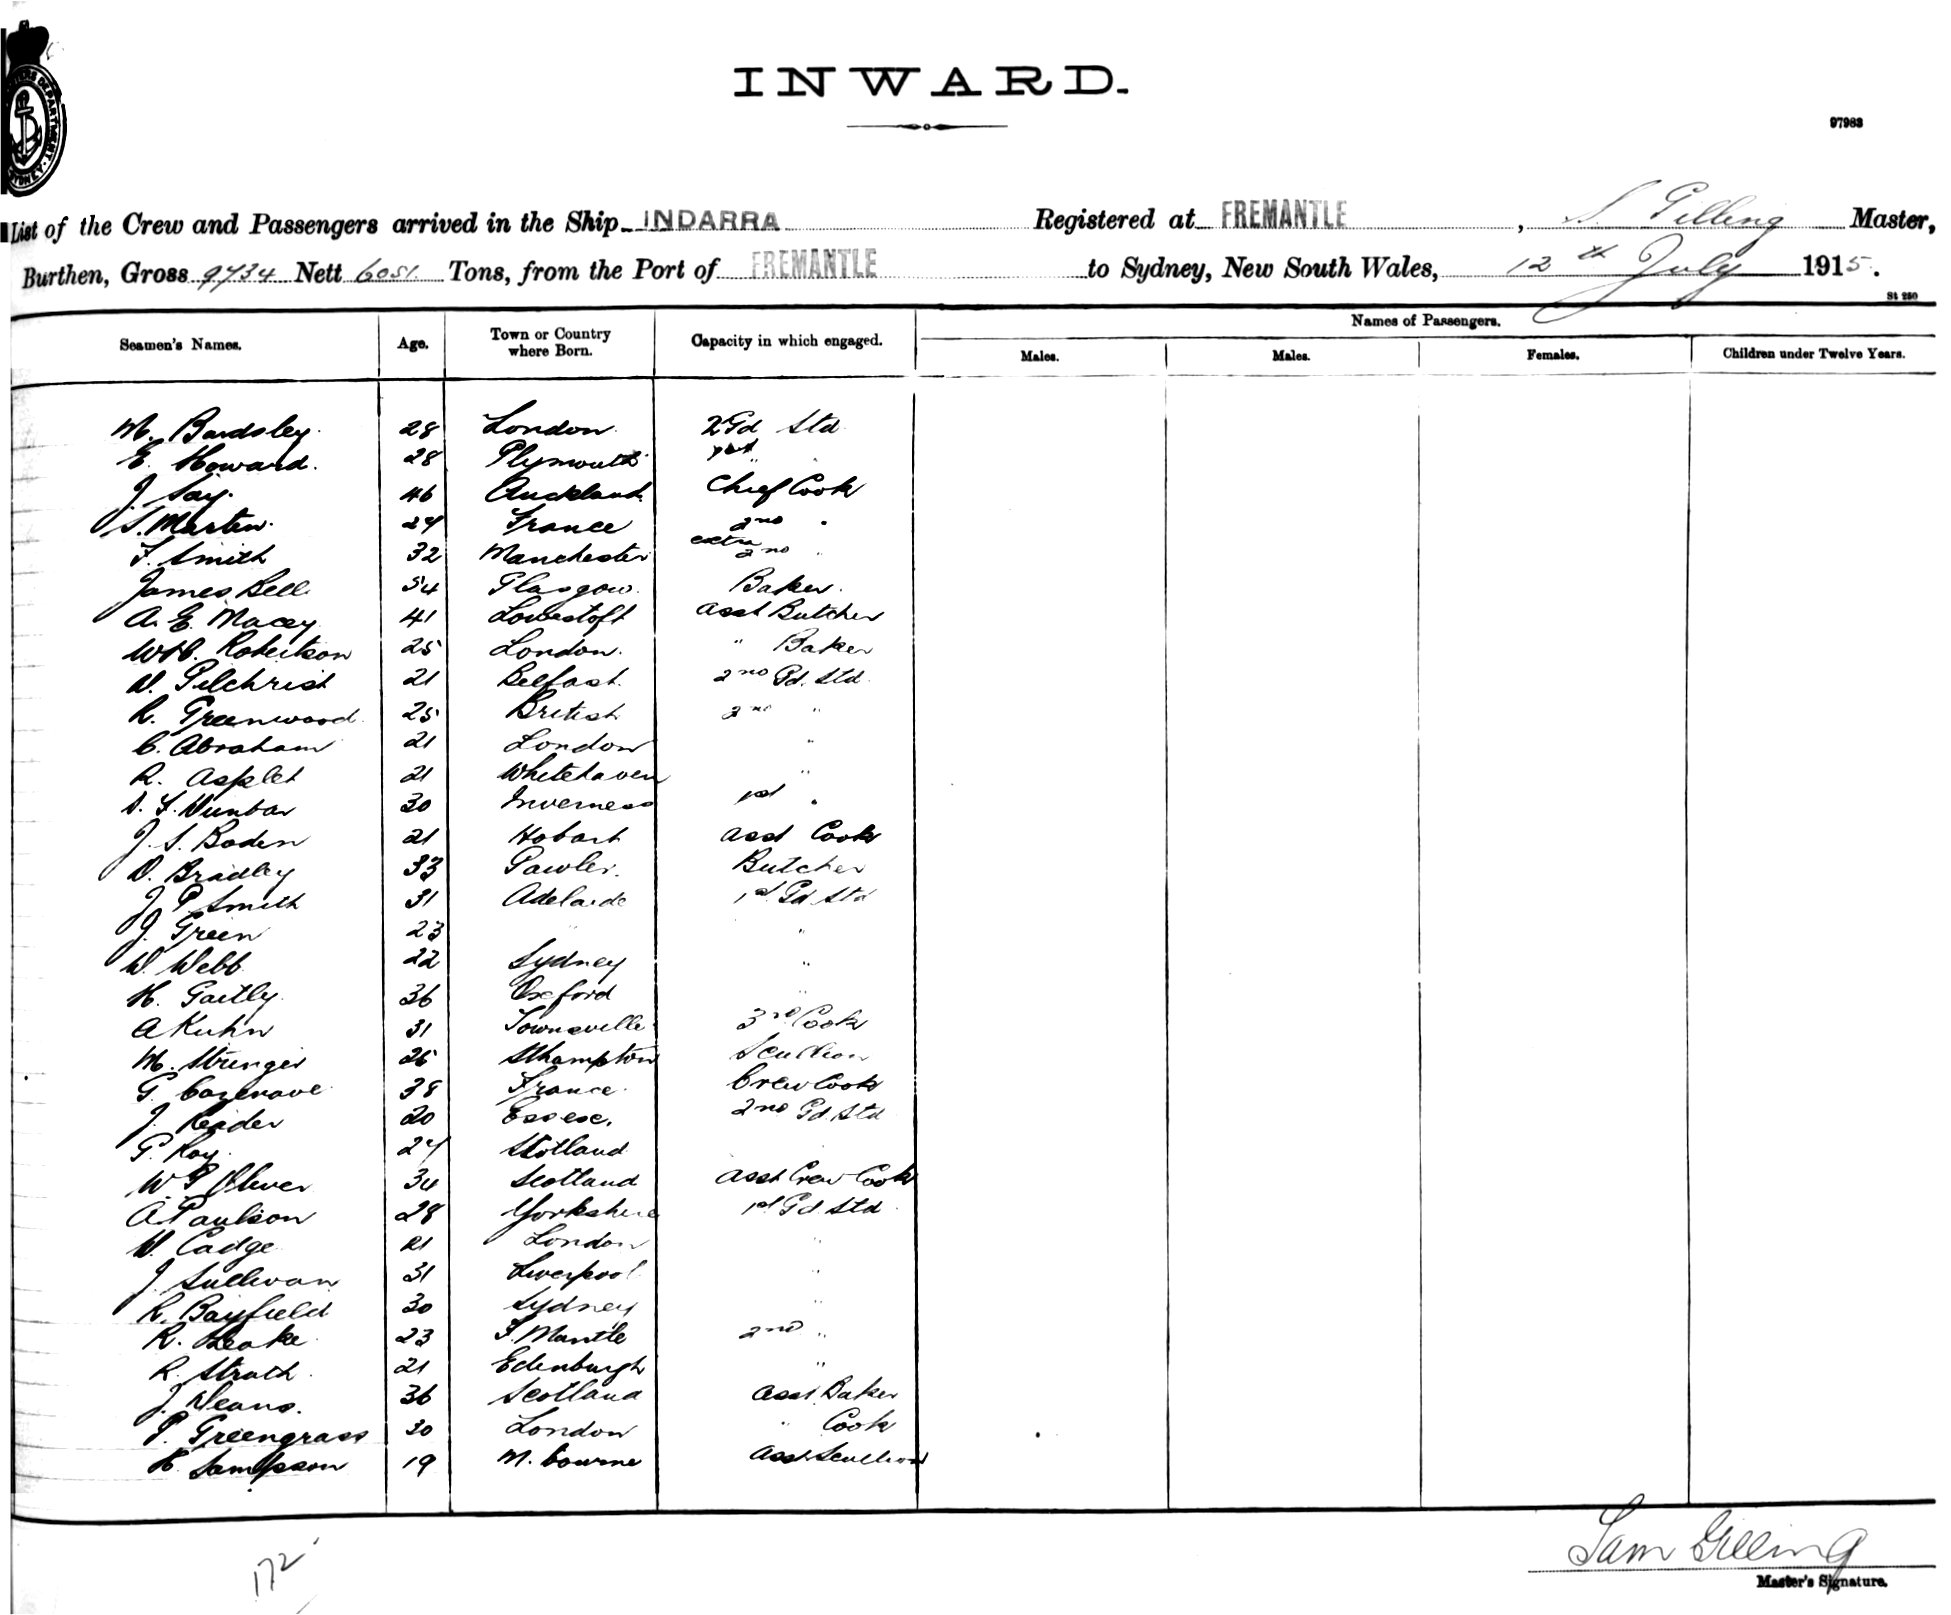 INWARD.
97983
List of the Crew and Passengers arrived in the Ship INDARRA Registered at FREMANTLE, S. Gilling Master,
Burthen, Gross 9734 Nett 6051 Tons, from the Port of FREMANTLE to Sydney, New South Wales, 12th July 1915.
St 250
Seamen's Names. Age. Town or Country where Born. Capacity in which engaged. Names of Passengers.
Males. Males. Females. Children under Twelve Years.
M. Bardsley. 28 London. 2 Gd Std
E. Howard. 28 Plymouth 1st "
J. Say. 46 Auckland Chief Cook
S. Martin. 24 France 2nd "
F. Smith 32 Manchester extra 2nd "
James Bell 54 Glasgow. Baker.
A. E. Macey 41 Lowestoft Asst Butcher
Robertson 25 London. " Baker
W. Gilchrist 21 Belfast. 2nd Gd. Std.
R. Greenwood 25 British 2nd "
C. Abraham 21 London "
R. Asplet 21 Whitehaven "
Dunbar 30 Inverness 1st "
J. S. Boden 21 Hobart Asst Cook
D. Bradley 33 Gawler. Butcher
J P Smith 31 Adelaide 1st Gd Std
J. Green 23 " "
W. Webb 22 Sydney "
H. Gaitly 36 Oxford "
A Kuhn 31 Townsville 3rd Cook
M. Stringer 26 Sthampton Scullion
G. Cazenave 38 France. Crew Cook
J. Reader 20 Essex. 2nd Gd Std
G. Roy. 24 Scotland
W. G Oliver 34 Scotland Asst Crew Cook
A Paulson 28 Yorkshire 1st Gd Std
W. Cadge 21 London "
J Sullivan 31 Liverpool "
R. Bayfield 30 Sydney "
R. Leake 23 F. Mantle 2nd "
R. Strath. 21 Edinburgh "
J. Deans. 36 Scotland Asst Baker
P. Greengrass 30 London " Cook
H. Sampson 19 M. bourne Asst Scullion
172
Sam Gilling
Master's Signature.